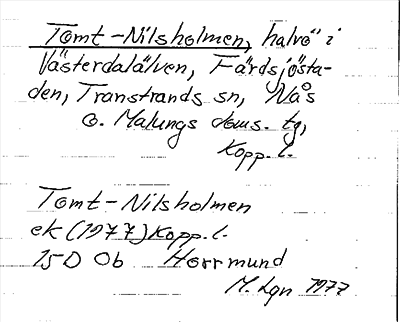 Tomt-Nilsholmen, halvö i
Västerdalälven, Färdsjösta-
den, Transtrands sn, Nås
o. Malungs doms. tg,
Kopp. l.
Tomt-Nilsholmen
ek (1977) Kopp. l.
15D Ob Horrmund
M. Lgn 1977